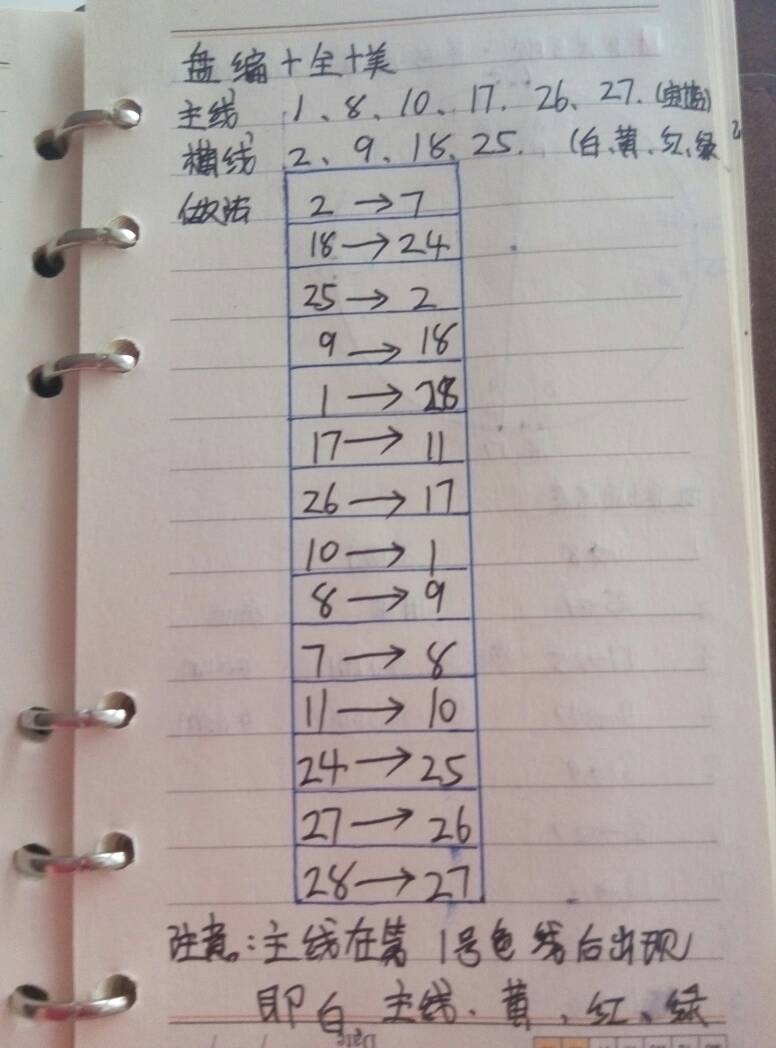 盘编十全十美
主线 1、8、10、17、26、27.
横线 2、9、18、25. (白、黄、红、绿
做法 2→7
18→24
25→2
9→18
1→28
17→11
26→17
10→1
8→9
7→8
11→10
24→25
27→26
28→27
注意:主线在第1号色线后出现
即白 主线、黄、红、绿